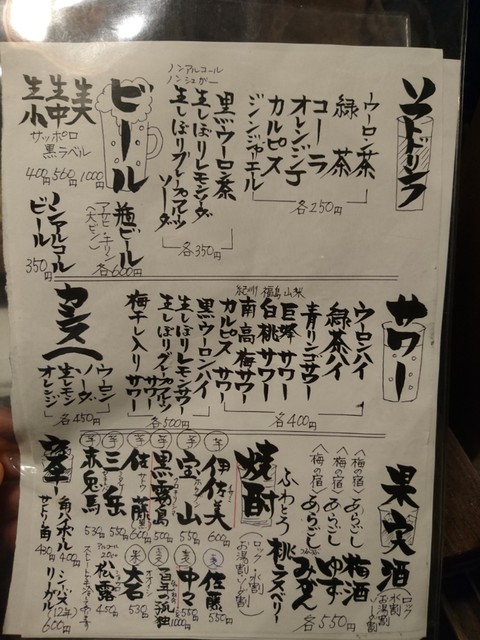 ソフトドリンク
ウーロン茶
緑茶
コーラ
オレンジ
カルピス
ジンジャエール
各250円
ノンアルコール
ノンシュガー
黒ウーロン茶
生しぼりレモンソーダ
生しぼりグレープフルーツ
ソーダ
各350円
ビール
生大
生中
生小
サッポロ
黒ラベル
400円 560円 1000円
瓶ビール
アサヒ・キリン
(大ビン)
各600円
ノンアルコール
ビール
350円
サワー
ウーロンハイ
緑茶ハイ
青リンゴサワー
山梨 巨峰サワー
福島 白桃サワー
紀州 南高梅サワー
カルピスサワー
各400円
黒ウーロンハイ
生しぼりレモンサワー
生しぼりグレープフルーツ
サワー
梅干し入りサワー
各500円
カシス
ウーロン
ソーダ
生レモン
オレンジ
各450円
果実酒
ロック
水割
お湯割
〈梅の宿〉あらごし梅酒
〈梅の宿〉あらごしゆず
〈梅の宿〉あらごしみかん
ふわとろ桃ラズベリー
各550円
焼酎
ロック 水割
お湯割
芋 伊佐美 600円
芋 宝山 550円
芋 黒霧島 500円
芋 佐藤 600円
芋 三岳 550円
芋 赤兎馬 530円
麦 佐藤 550円
麦 中々 550円
麦 百年の孤独 1000円
米 大石 530円
松露 450円
角ハイボール 400円
サントリー角
シーバス
(12年)
600円
リーガル